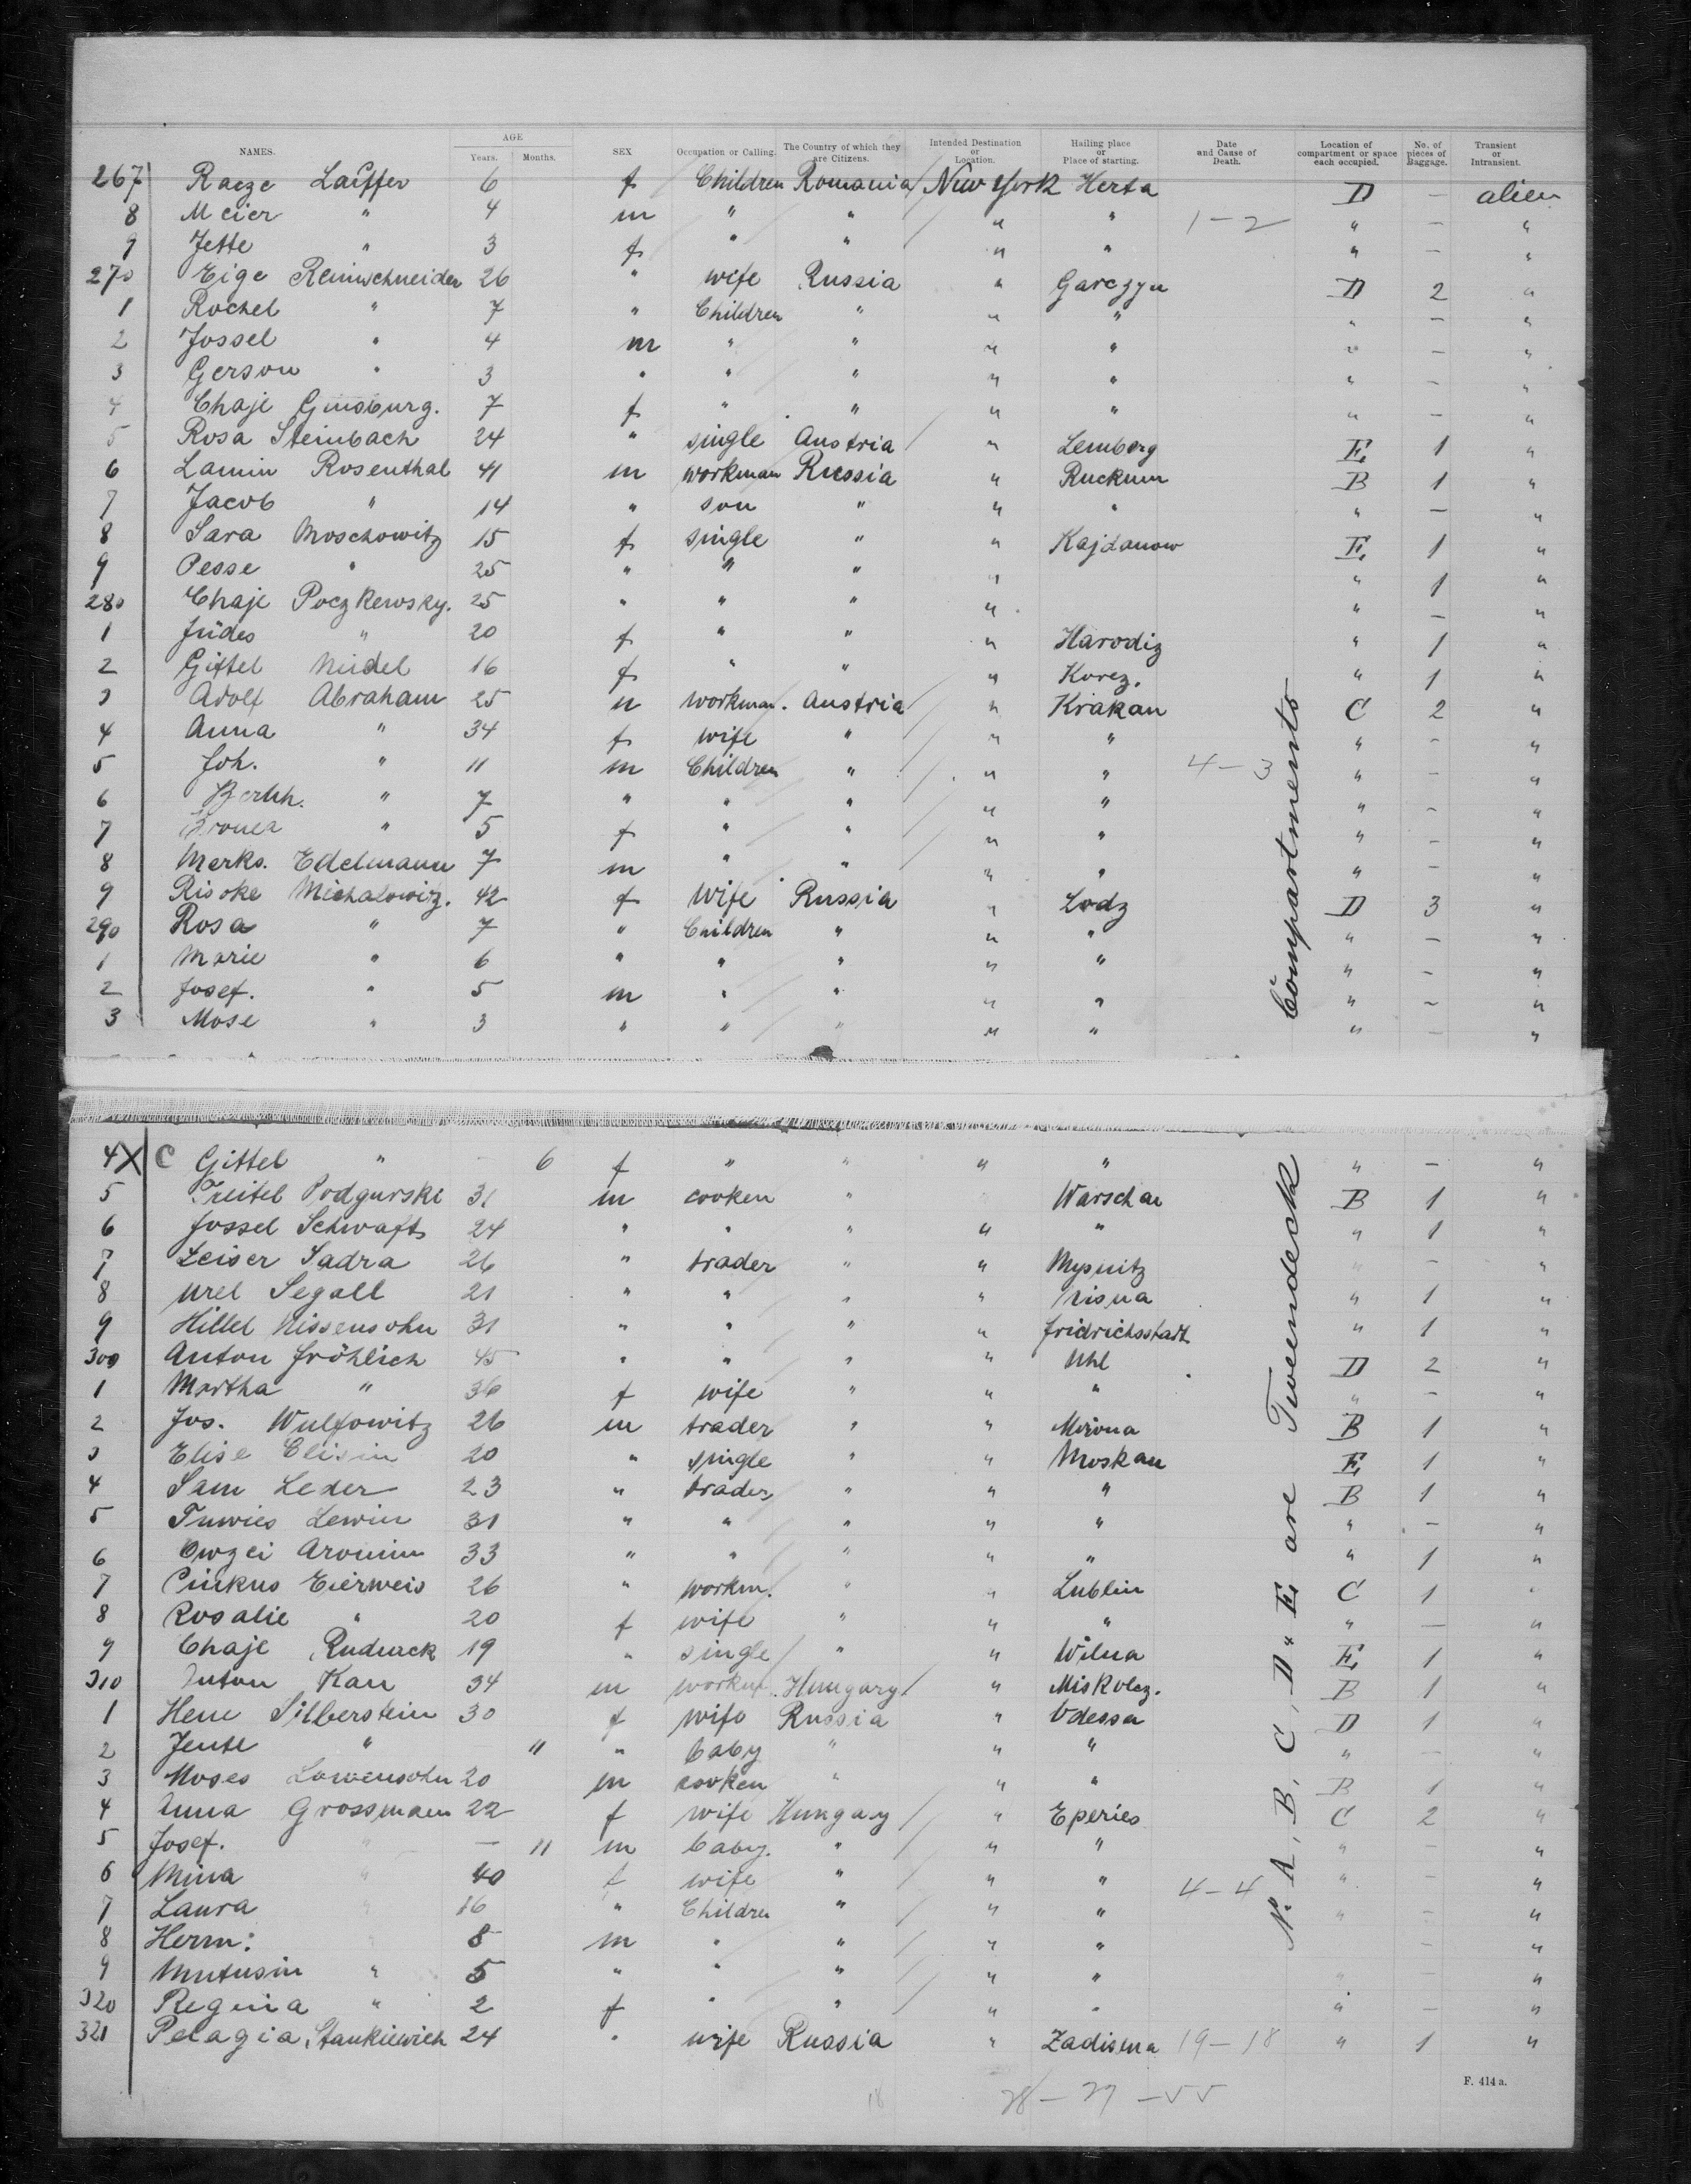 NAMES. AGE Years. Months. SEX Occupation or Calling. The Country of which they are Citizens. Intended Destination or Location. Hailing place or Place of starting. Date and Cause of Death. Location of compartment or space each occupied. No. of pieces of Baggage. Transient or Intransient.
267 Raeze Laiffer 6 f Children Romania New York Herta D — alien
8 Meier " 4 m " " " " 1-2 " — "
9 Jette " 3 f " " " " " — "
270 Eige Reinschneider 26 " wife Russia " Garczyn D 2 "
1 Rochel " 7 " Children " " " " — "
2 Jossel " 4 m " " " " " — "
3 Gerson " 3 " " " " " " — "
4 Chaje Ginsburg. 7 f " " " " " — "
5 Rosa Steinbach 24 " single Austria " Lemberg E 1 "
6 Lamin Rosenthal 41 m workman Russia " Ruckum B 1 "
7 Jacob " 14 " son " " " " — "
8 Sara Moschowitz 15 f single " " Kajdanow E 1 "
9 Pesse " 25 " " " " " 1 "
280 Chaje Poczkewsky. 25 " " " " " — "
1 Judes " 20 f " " " Harodiz " 1 "
2 Gittel Neidel 16 f " " " Korez. " 1 "
3 Adolf Abraham 25 m workman. Austria " Krakau C 2 "
4 Anna " 34 f wife " " " " — "
5 Joh. " 11 m Children " " " 4-3 " — "
6 Bertth. " 7 " " " " " " — "
7 " 5 f " " " " " — "
8 Merks. Edelmann 7 m " " " " " — "
9 Riswke Michalowitz. 42 f Wife Russia " Lodz D 3 "
290 Rosa " 7 " Children " " " " — "
1 Marie " 6 " " " " " " — "
2 Josef. " 5 m " " " " " — "
3 Mose " 3 " " " " " " — "
4 X C Gittel " — 6 f " " " " " — "
5 Treitel Podgurski 31 m cooken " Warschau B 1 "
6 Jossel Schwafts 24 " " " " " " 1 "
7 Leiser Sadra 26 " trader " " Mysnitz " — "
8 Urel Segall 21 " " " " " 1 "
9 Hillel Nissensohn 31 " " " " Fridrichsstadt " 1 "
300 Anton Fröhlich 45 " " " " Uhl D 2 "
1 Martha " 36 f wife " " " " — "
2 Jos. Wulfowitz 26 m trader " " B 1 "
3 Elise Elisin 20 " single " " Moskau E 1 "
4 Sam Leder 23 " trader " " " B 1 "
5 Tuwies Lewin 31 " " " " " " — "
6 Owzei Aronim 33 " " " " " " 1 "
7 Pinkus Eierweis 26 " workm. " " Lublin C 1 "
8 Rosalie " 20 f wife " " " " — "
9 Chaje Rudnack 19 " single " " Wilna E 1 "
310 Anton Kan 34 m workm. Hungary " Miskolcz. B 1 "
1 Hene Silberstein 30 f wife Russia " Odessa D 1 "
2 Jente " 11 " baby " " " " — "
3 Moses Lowensohn 20 m cooken " " " B 1 "
4 Anna Grossmann 22 f wife Hungary " Eperies C 2 "
5 Josef. " — 11 m baby. " " " " — "
6 Mina " 40 f wife " " " 4-4 " — "
7 Laura " 16 " Children " " " " — "
8 Herm: " 8 m " " " " — "
9 " 5 " " " " " " — "
320 Regina " 2 f " " " " " — "
321 Pelagia Stankiewich 24 " wife Russia " Zadisma 19-18 " 1 "
No A, B, C, D " E are Tweendeck Compartments
18
28 — 27 — 55
F. 414 a.